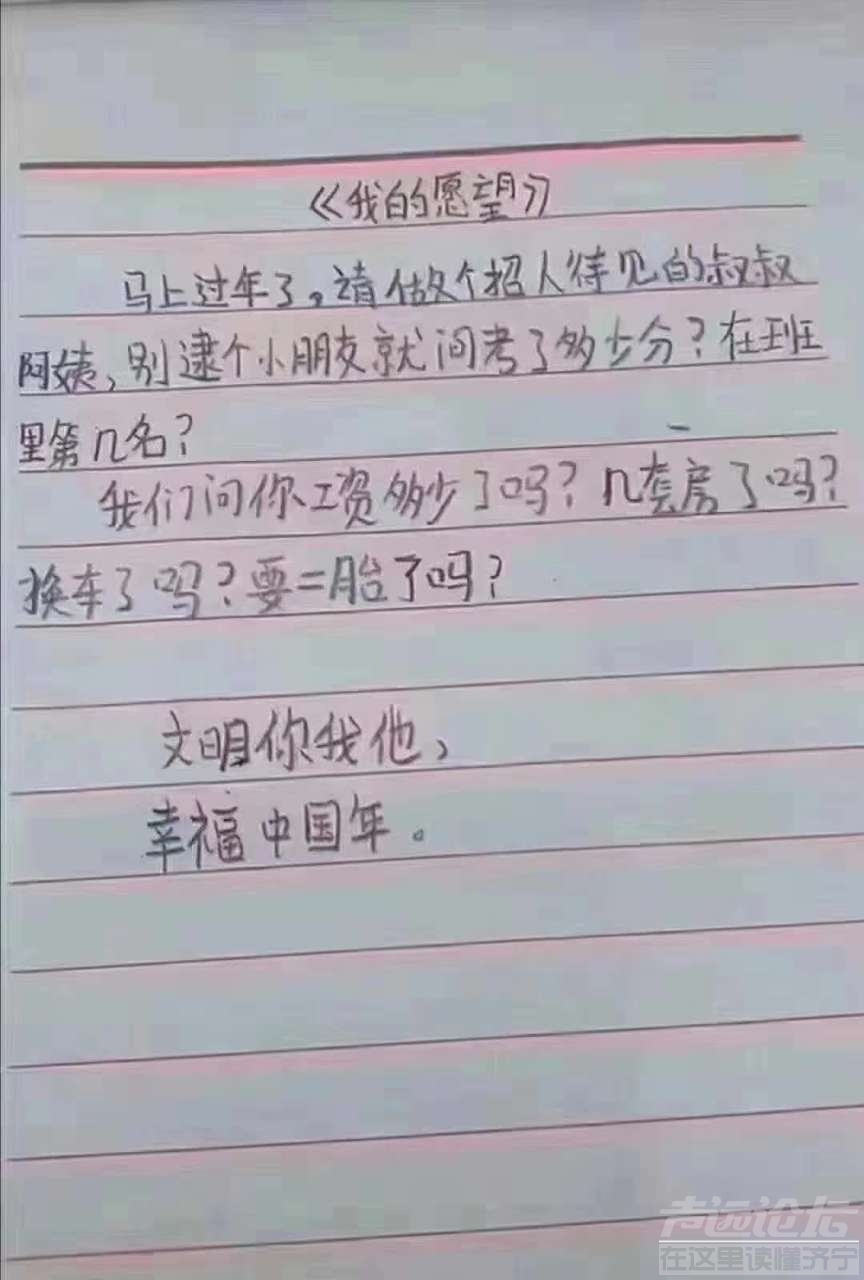 《我的愿望》
马上过年了,请做个招人待见的叔叔
阿姨,别逮个小朋友就问考了多少分?在班
里第几名?
我们问你工资多少了吗?几套房了吗?
换车了吗?要二胎了吗?
文明你我他,
幸福中国年。
声远论坛
在这里读懂济宁